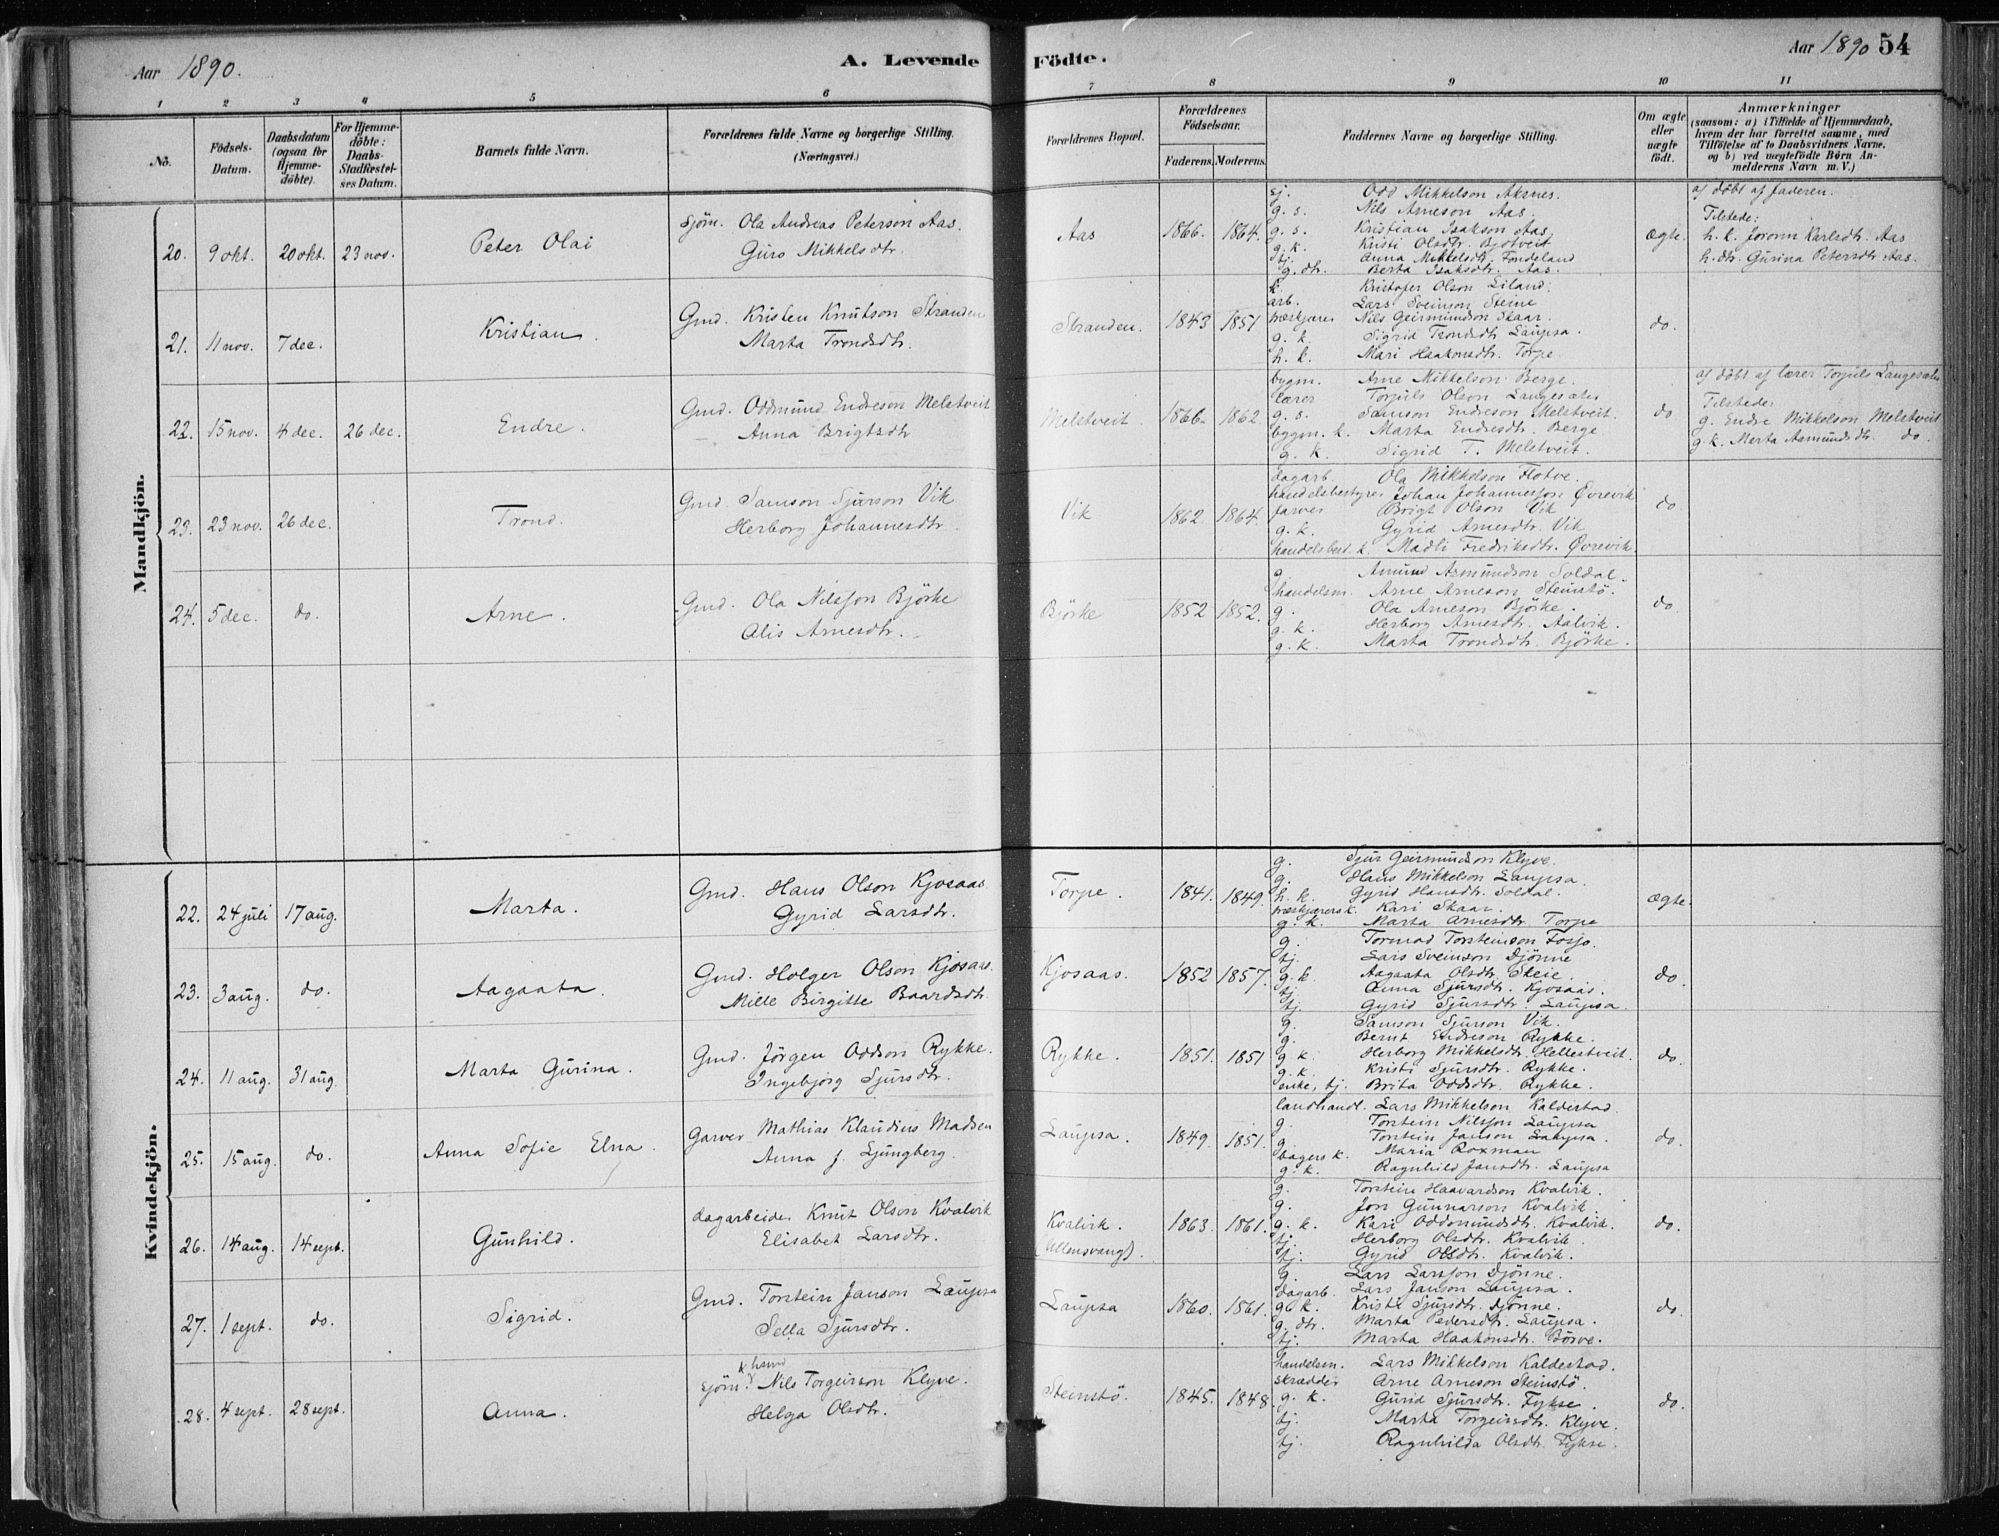 Aar 1890.
A. Levende Födte.
Aar 1890 54
1 2 3 4 5 6 7 8 9 10 11
No.
Födsels-Datum.
Daabsdatum (ogsaa for Hjemme-döbte).
For Hjemme-döbte: Daabs-Stadfæstel-ses Datum.
Barnets fulde Navn.
Forældrenes fulde Navne og borgerlige Stilling. (Næringsvei.)
Forældrenes Bopæl.
Forældrenes Födselsaar.
Faderens. Moderens.
Faddernes Navne og borgerlige Stilling.
Om ægte eller uægte födt.
Anmærkninger
(saasom: a) i Tilfælde af Hjemmedaab, hvem der har forrettet samme, med Tilföielse af to Daabsvidners Navne, og b) ved uægtefödte Börn An-melderens Navn m. V.)
Mandkjön.
20. 9 okt. 20 okt. 23 nov. Peter Olai
Sjöm. Ola Andreas Peterson Aas.
Guro Mikkelsdtr.
Aas 1866. 1864.
sj. Odd Mikkelson Aksnes.
g. s. Nils Arneson Aas.
g. s. Kristian Isakson Aas
g. k. Kristi Olsdtr. Bjotveit
tj. Anna Mikkelsdtr. Fondeland
g. dtr. Berta Isaksdtr. Aas.
ægte.
af döbt af faderen.
Tilstede:
h. k. Joronn Karlsdtr. Aas
h. dtr. Gurina Petersdtr Aas.
21. 11 nov. 7 dec. Kristian.
Gmd. Kristen Knutson Stranden
Marta Trondsdtr.
Stranden. 1843 1851
k. Kristofer Olson Liland.
arb. Lars Sveinson Steine
præskjarer Nils Geirmundson Skaar.
g. k. Sigrid Trondsdtr Laupsa.
h. k. Mari Haakonsdtr. Torpe
do.
22. 15 nov. 4 dec. 26 dec. Endre.
Gmd. Oddmund Endreson Melstveit
Anna Brigtsdtr
Melstveit. 1866. 1862.
bygm. Arne Mikkelson Berge.
lærer Torjuls Olson Langesæter
g. s. Samson Endreson Melstveit.
bygm. k. Marta Endresdtr. Berge
g. k. Sigrid T. Melstveit.
do
af döbt af lærer Torjuls Langesæter
Tilstede:
g. Endre Mikkelson Melstveit
g. k. Marta Asmundsdtr. do.
23. 23 nov. 26 dec. Trond.
Gmd Samson Sjurson Vik
Herborg Johannesdtr.
Vik 1862. 1864.
dagarb. Ola Mikkelson Flotve.
handelsbestyrer Johan Johannesson Øvrevik
farver Brigt Olson Vik
g. k. Gyrid Arnesdtr. Vik
handelsbest. k. Madli Fredriksdtr. Øvrevik.
do
24. 5 dec. do. Arne.
Gmd. Ola Nilsson Björke
Alis Arnesdtr.
Björke 1852 1852.
g. Amund Asmundson Soldal.
handelsm. Arne Arneson Steinstö.
g. Ola Arneson Björke.
g. k. Herborg Arnesdtr. Aalvik.
g. k. Marta Trondsdtr. Björke.
do.
Kvindekjön.
22. 24 juli 17 aug. Marta.
Gmd. Hans Olson Kjosaas
Gyrid Larsdtr.
Torpe. 1841. 1849.
g. Sjur Geirmundson Klyve.
g. Hans Mikkelson Laupsa.
h. k. Gyrid Hansdtr. Soldal.
præskjærers k. Kari Skaar.
g. k. Marta Arnesdtr. Torpe
ægte.
23. 3 aug. do. Aagaata.
Gmd. Holger Olson Kjosaas.
Mille Birgitte Baardsdtr.
Kjosaas. 1852 1857.
g. Tormod Torsteinson Fosjo.
tj. Lars Sveinson Djönne
g. k Aagaata Olsdtr. Skeie.
tj. Anna Sjursdtr. Kjosaas.
tj. Gyrid Sjursdtr. Laupsa
do.
24. 11 aug. 31 aug. Marta Gurina.
Gmd. Jörgen Oddson Rykke.
Ingebjörg Sjursdtr.
Rykke. 1851. 1851
g. Samson Sjurson Vik.
g. Bernt Endreson Rykke.
g. k. Herborg Mikkelsdtr. Hellestveit.
g. k. Kristi Sjursdtr. Rykke.
enke, tj. Brita Oddsdtr. Rykke.
do.
25. 15 aug. do. Anna Sofie Elna.
Garver Mathias Klaudius Madsen
Anna J. Ljungberg.
Laupsa. 1849 1851.
landhandl. Lars Mikkelson Kaldestad.
g. Torstein Nilsson Laupsa
g. Torstein Janson Laupsa.
bagers k. Maria Roxman
g. k. Ragnhild Jansdtr. Laupsa
do.
26. 14 aug. 14 sept. Gunhild.
dagarbeider Knut Olson Kvalvik
Elisabet Larsdtr.
Kvalvik. (Ullensvang). 1863. 1861.
g. Torstein Haavardson Kvalvik.
g. Jon Gunnarson Kvalvik.
g. k. Kari Oddmundsdtr. Kvalvik.
tj. Herborg Olsdtr. Kvalvik.
tj. Gyrid Olsdtr. Kvalvik.
do.
27. 1 sept. do. Sigrid.
Gmd. Torstein Janson Laupsa
Sella Sjursdtr.
Laupsa 1860. 1861.
g. Lars Larsson Djönne.
dagarb. Lars Janson Laupsa.
g. k. Kristi Sjursdtr. Djönne.
g. dtr. Marta Pedersdtr. Laupsa.
tj. Marta Haakonsdtr. Börve.
do.
28. 4 sept. 28 sept. Anna.
sjöm. & hsmd Nils Torgeirson Klyve.
Helga Olsdtr.
Steinstö. 1845. 1848
handelsm. Lars Mikkelson Kaldestad.
skrædder Arne Arneson Steinstö.
g. k. Gurid Sjursdtr. Fykse.
tj. Marta Torgeirsdtr. Klyve.
tj. Ragnhilda Olsdtr. Fykse.
do.